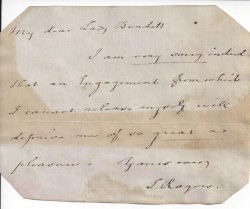 My dear Lady Burdett
I am very sorry indeed
that an Engagement from which
I cannot release myself will
deprive me of so great a
pleasure. Yours ever
S. Rogers.